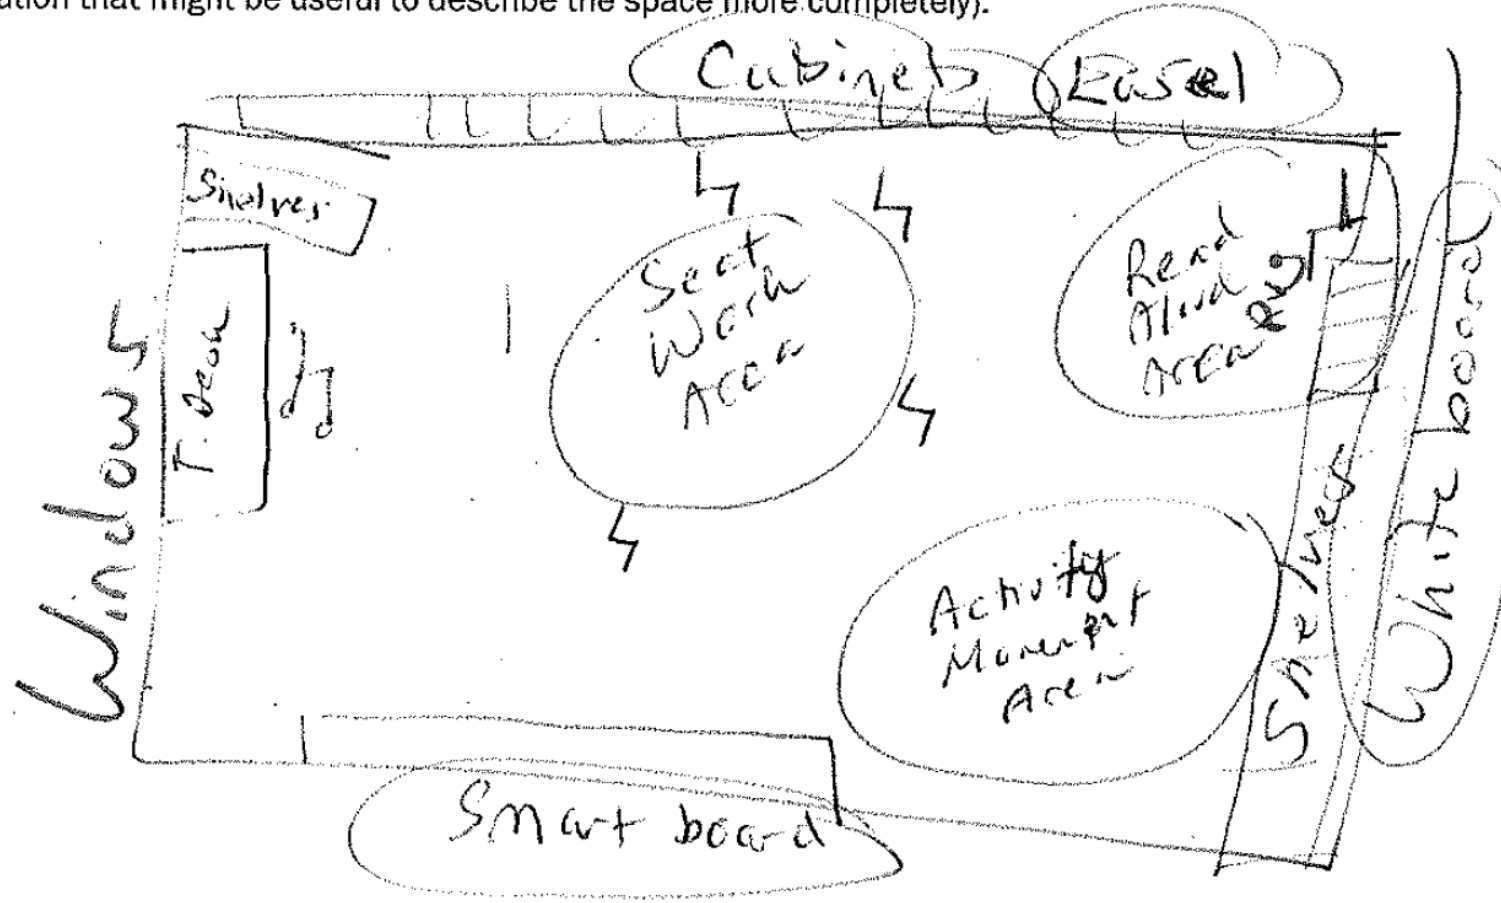 ution that might be useful to describe the space more completely).
Cabinets
Easel
Shelves
Windows
T. Desk
Seat
Work
Area
Read
Aloud
Area
Rug
White board
Shelves
Activity
Movement
Area
Smart board